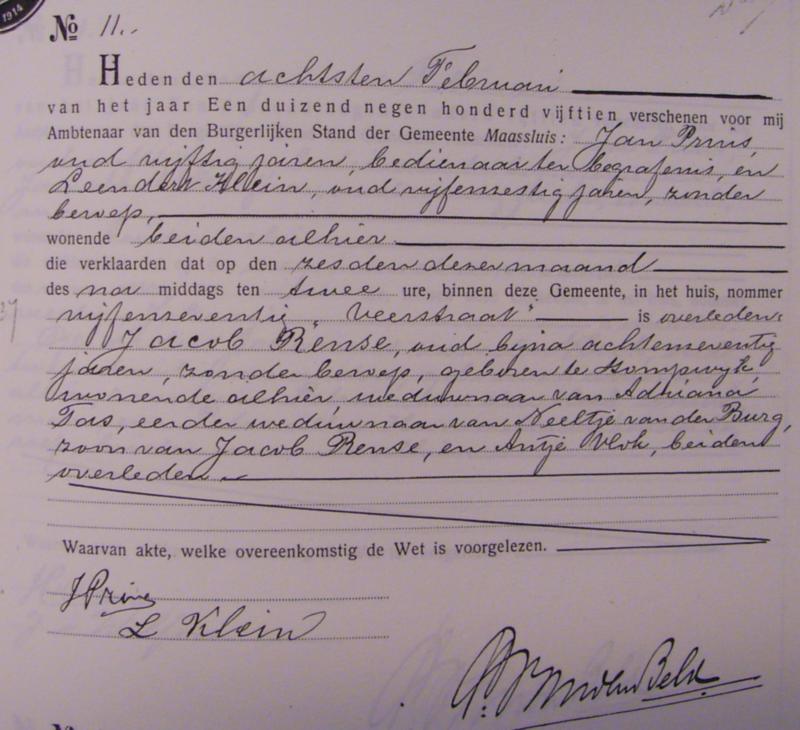 1914
No 11.-
Heden den achtsten Februari
van het jaar Een duizend negen honderd vijftien verschenen voor mij
Ambtenaar van den Burgerlijken Stand der Gemeente Maassluis: Jan Prins,
oud vijftig jaren, bedienaar ter begrafenis, en
Leendert Klein, oud vijfenzestig jaren, zonder
beroep,
wonende beiden alhier
die verklaarden dat op den zesden dezer maand
des na middags ten twee ure, binnen deze Gemeente, in het huis, nommer
vijfenzeventig "Veerstraat" is overleden:
Jacob Rense, oud bijna achtenzeventig
jaren, zonder beroep, geboren te Kompwyk,
wonende alhier, weduwnaar van Adriana
Tas, eerder weduwnaar van Neeltje van der Burg,
zoon van Jacob Rense, en Antje Vlok, beiden
overleden
Waarvan akte, welke overeenkomstig de Wet is voorgelezen.
J Prins
L Klein